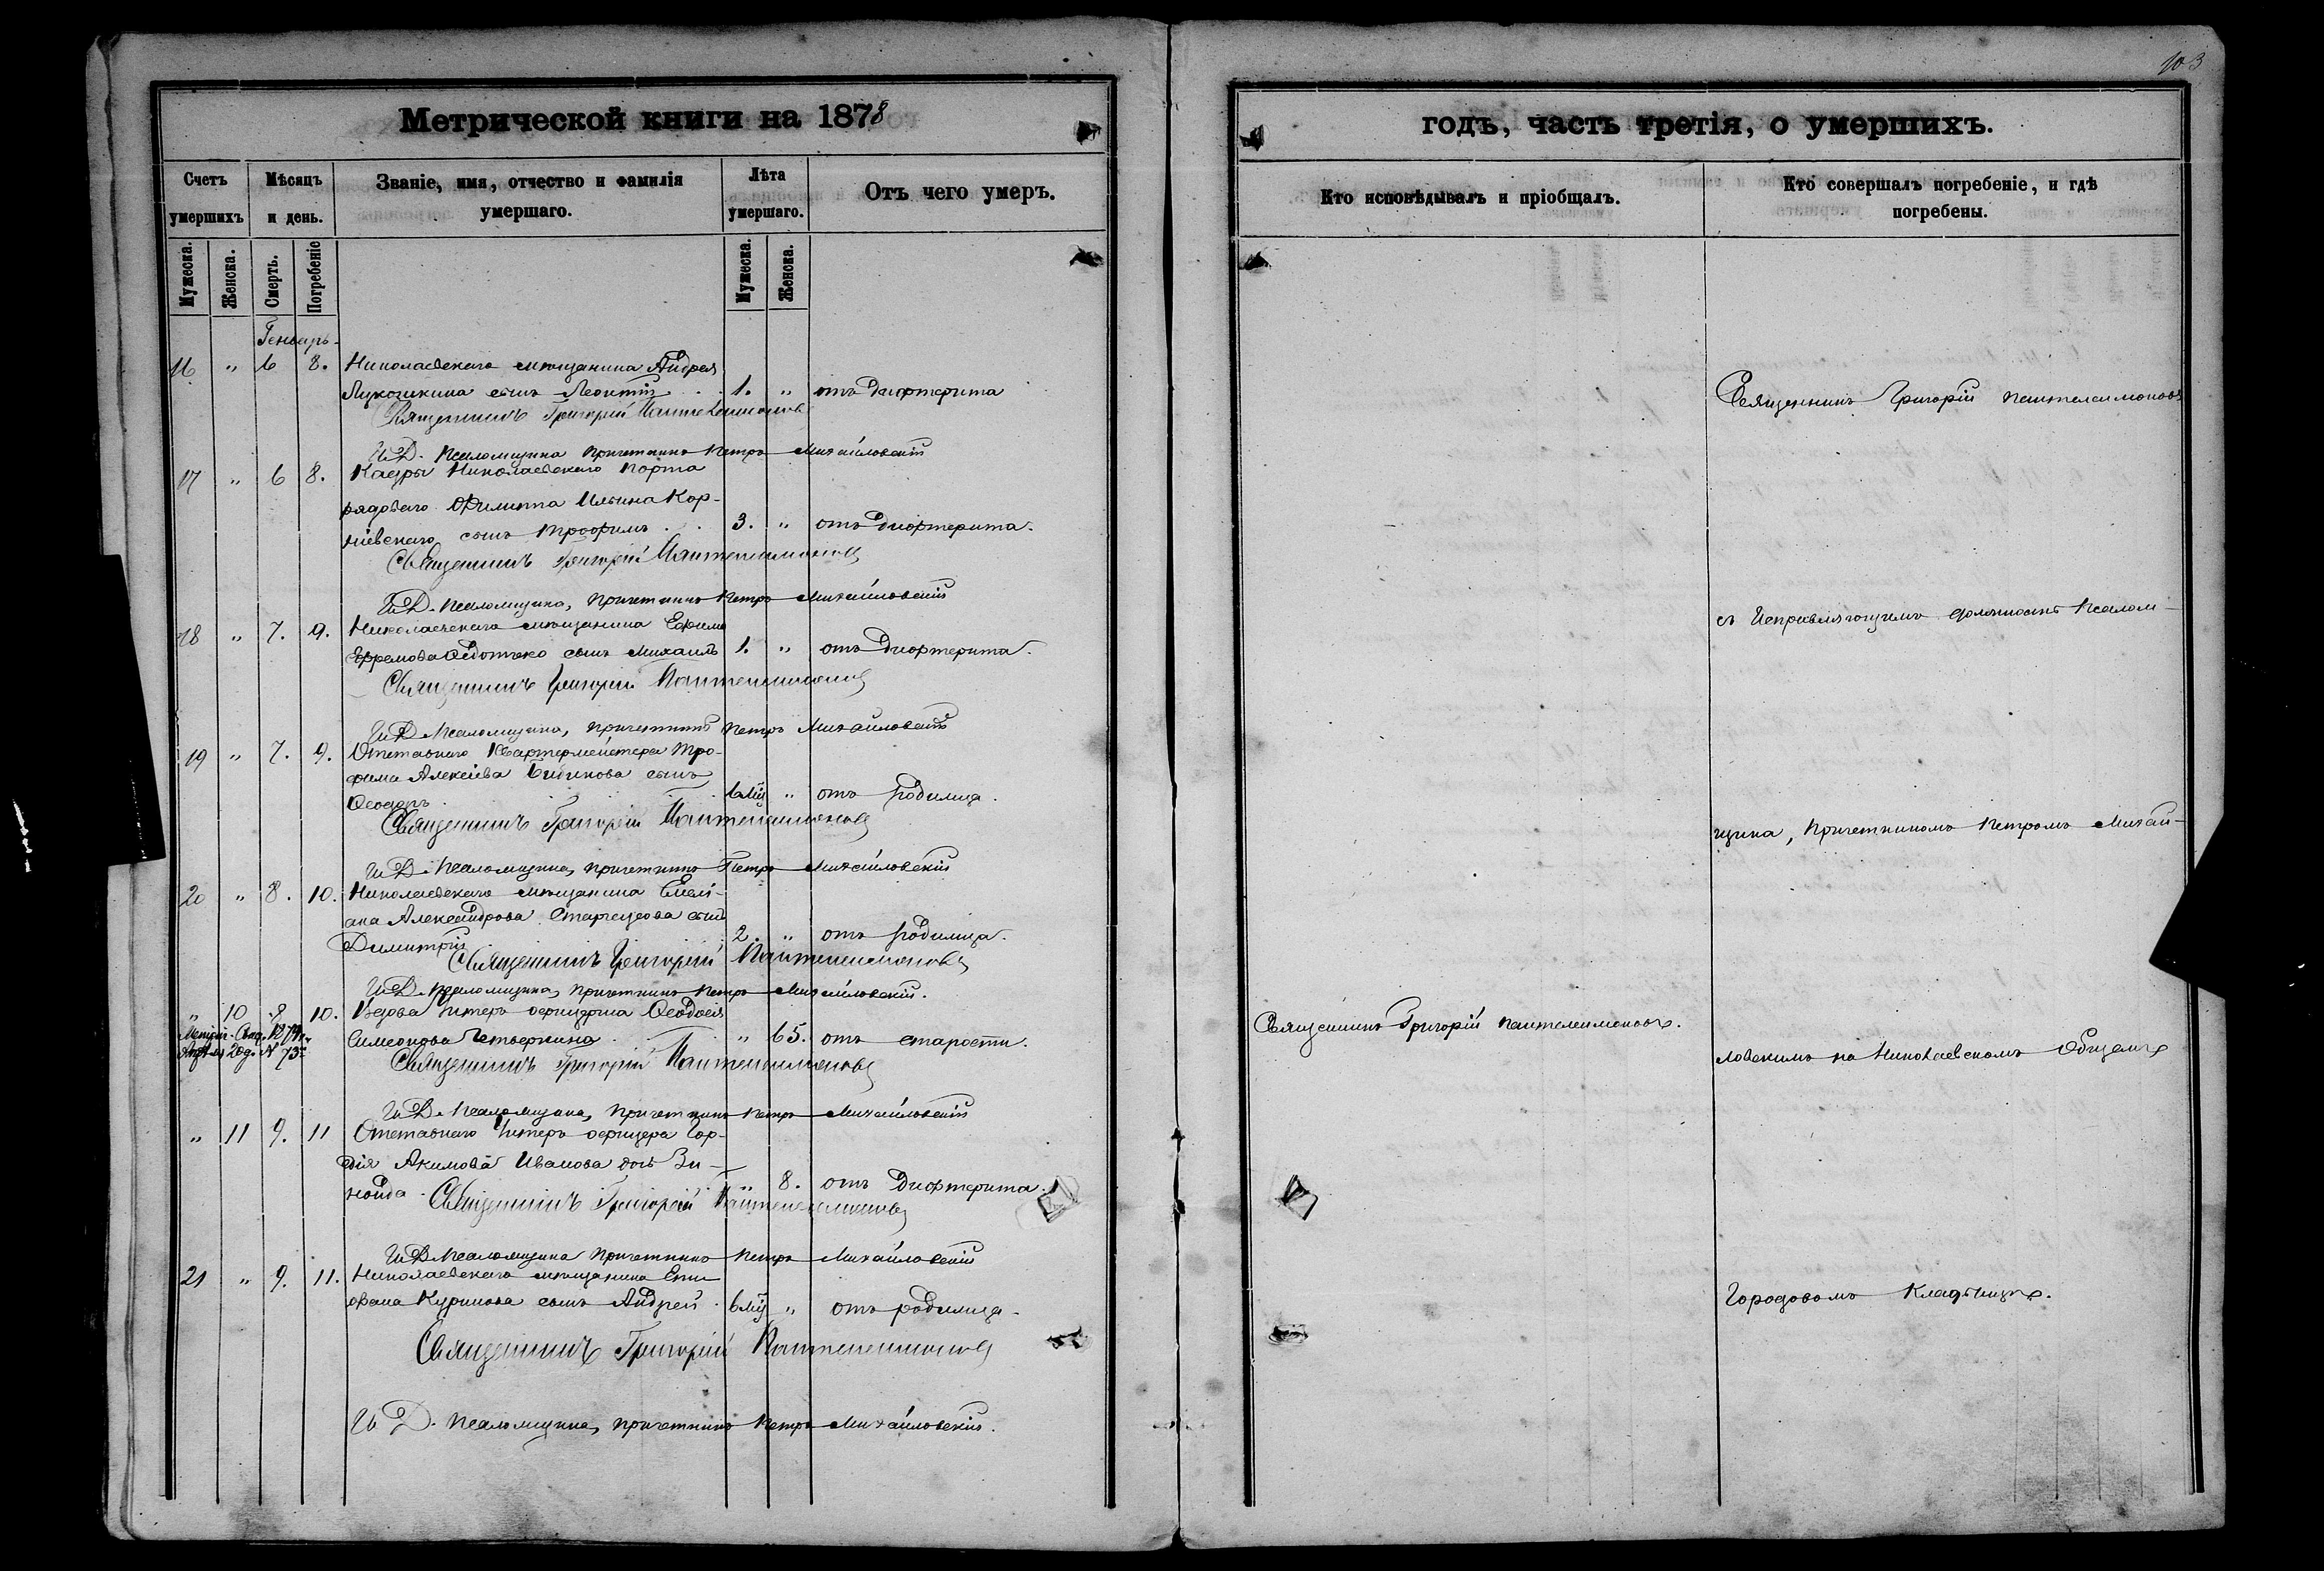 103
Метрической книги на 1878
годъ, часть третія, о умершихъ.
Счетъ умершихъ
Мѣсяцъ и день.
Званіе, имя, отчество и фамилія умершаго.
Лѣта умершаго.
Отъ чего умеръ.
Кто исповѣдывалъ и пріобщалъ.
Кто совершалъ погребеніе, и гдѣ погребены.
Мужеска.
Женска.
Смерть.
Погребеніе
Мужеска.
Женска.
Генварь
16 " 6 8. Николаевскаго мѣщанина Андрея
сынъ Леонтій 1. " отъ дифтерита
Священникъ Григорій Пантелеимоновъ
И.Д. Псаломщика Причетникъ Петръ Михайловскій
17 " 6 8. Кадры Николаевскаго Порта
рядоваго Филиппа Ильина Кор-
ніевскаго сынъ Трофимъ 3. " отъ дифтерита.
Священникъ Григорій Пантелеимоновъ
И.Д. Псаломщика, Причетникъ Петръ Михайловскій
18 " 7. 9. Николаевскаго мѣщанина Ефима
Ефремова сынъ Михаилъ 1. " отъ дифтерита.
Священникъ Григорій Пантелеимоновъ
И.Д. Псаломщика, Причетникъ Петръ Михайловскій
19 " 7. 9. Отставнаго Квартермейстера Тро-
фима Алексѣева сынъ
Ѳеодоръ 6 мц " отъ родимца.
Священникъ Григорій Пантелеимоновъ
И.Д. Псаломщика, Причетникъ Петръ Михайловскій
20 " 8. 10. Николаевскаго мѣщанина Емелі-
ана Александрова сынъ
Димитрій 2. " отъ родимца.
Священникъ Григорій Пантелеимоновъ
И.Д. Псаломщика, Причетникъ Петръ Михайловскій.
" 10 8 10. Вдова Унтеръ офицерша Ѳеодосія
Симеонова Четверкина " 65. отъ старости.
Священникъ Григорій Пантелеимоновъ
И.Д. Псаломщика, Причетникъ Петръ Михайловскій
" 11 9. 11 Отставнаго Унтеръ офицера Гор-
дія Акимова Иванова дочь Зи-
наида " 8. отъ дифтерита.
Священникъ Григорій Пантелеимоновъ
И.Д. Псаломщика Причетникъ Петръ Михайловскій
21 " 9. 11. Николаевскаго мѣщанина Епи-
фана Курикова сынъ Андрей 6 мц " отъ родимца.
Священникъ Григорій Пантелеимоновъ
И.Д. Псаломщика, Причетникъ Петръ Михайловскій.
Священникъ Григорій Пантелеимоновъ.
Священникъ Григорій Пантелеимоновъ
съ Исправляющимъ должность Псалом-
щика, Причетникомъ Петромъ Михай-
ловскимъ на Николаевскомъ Общемъ
Городовомъ Кладбищѣ.